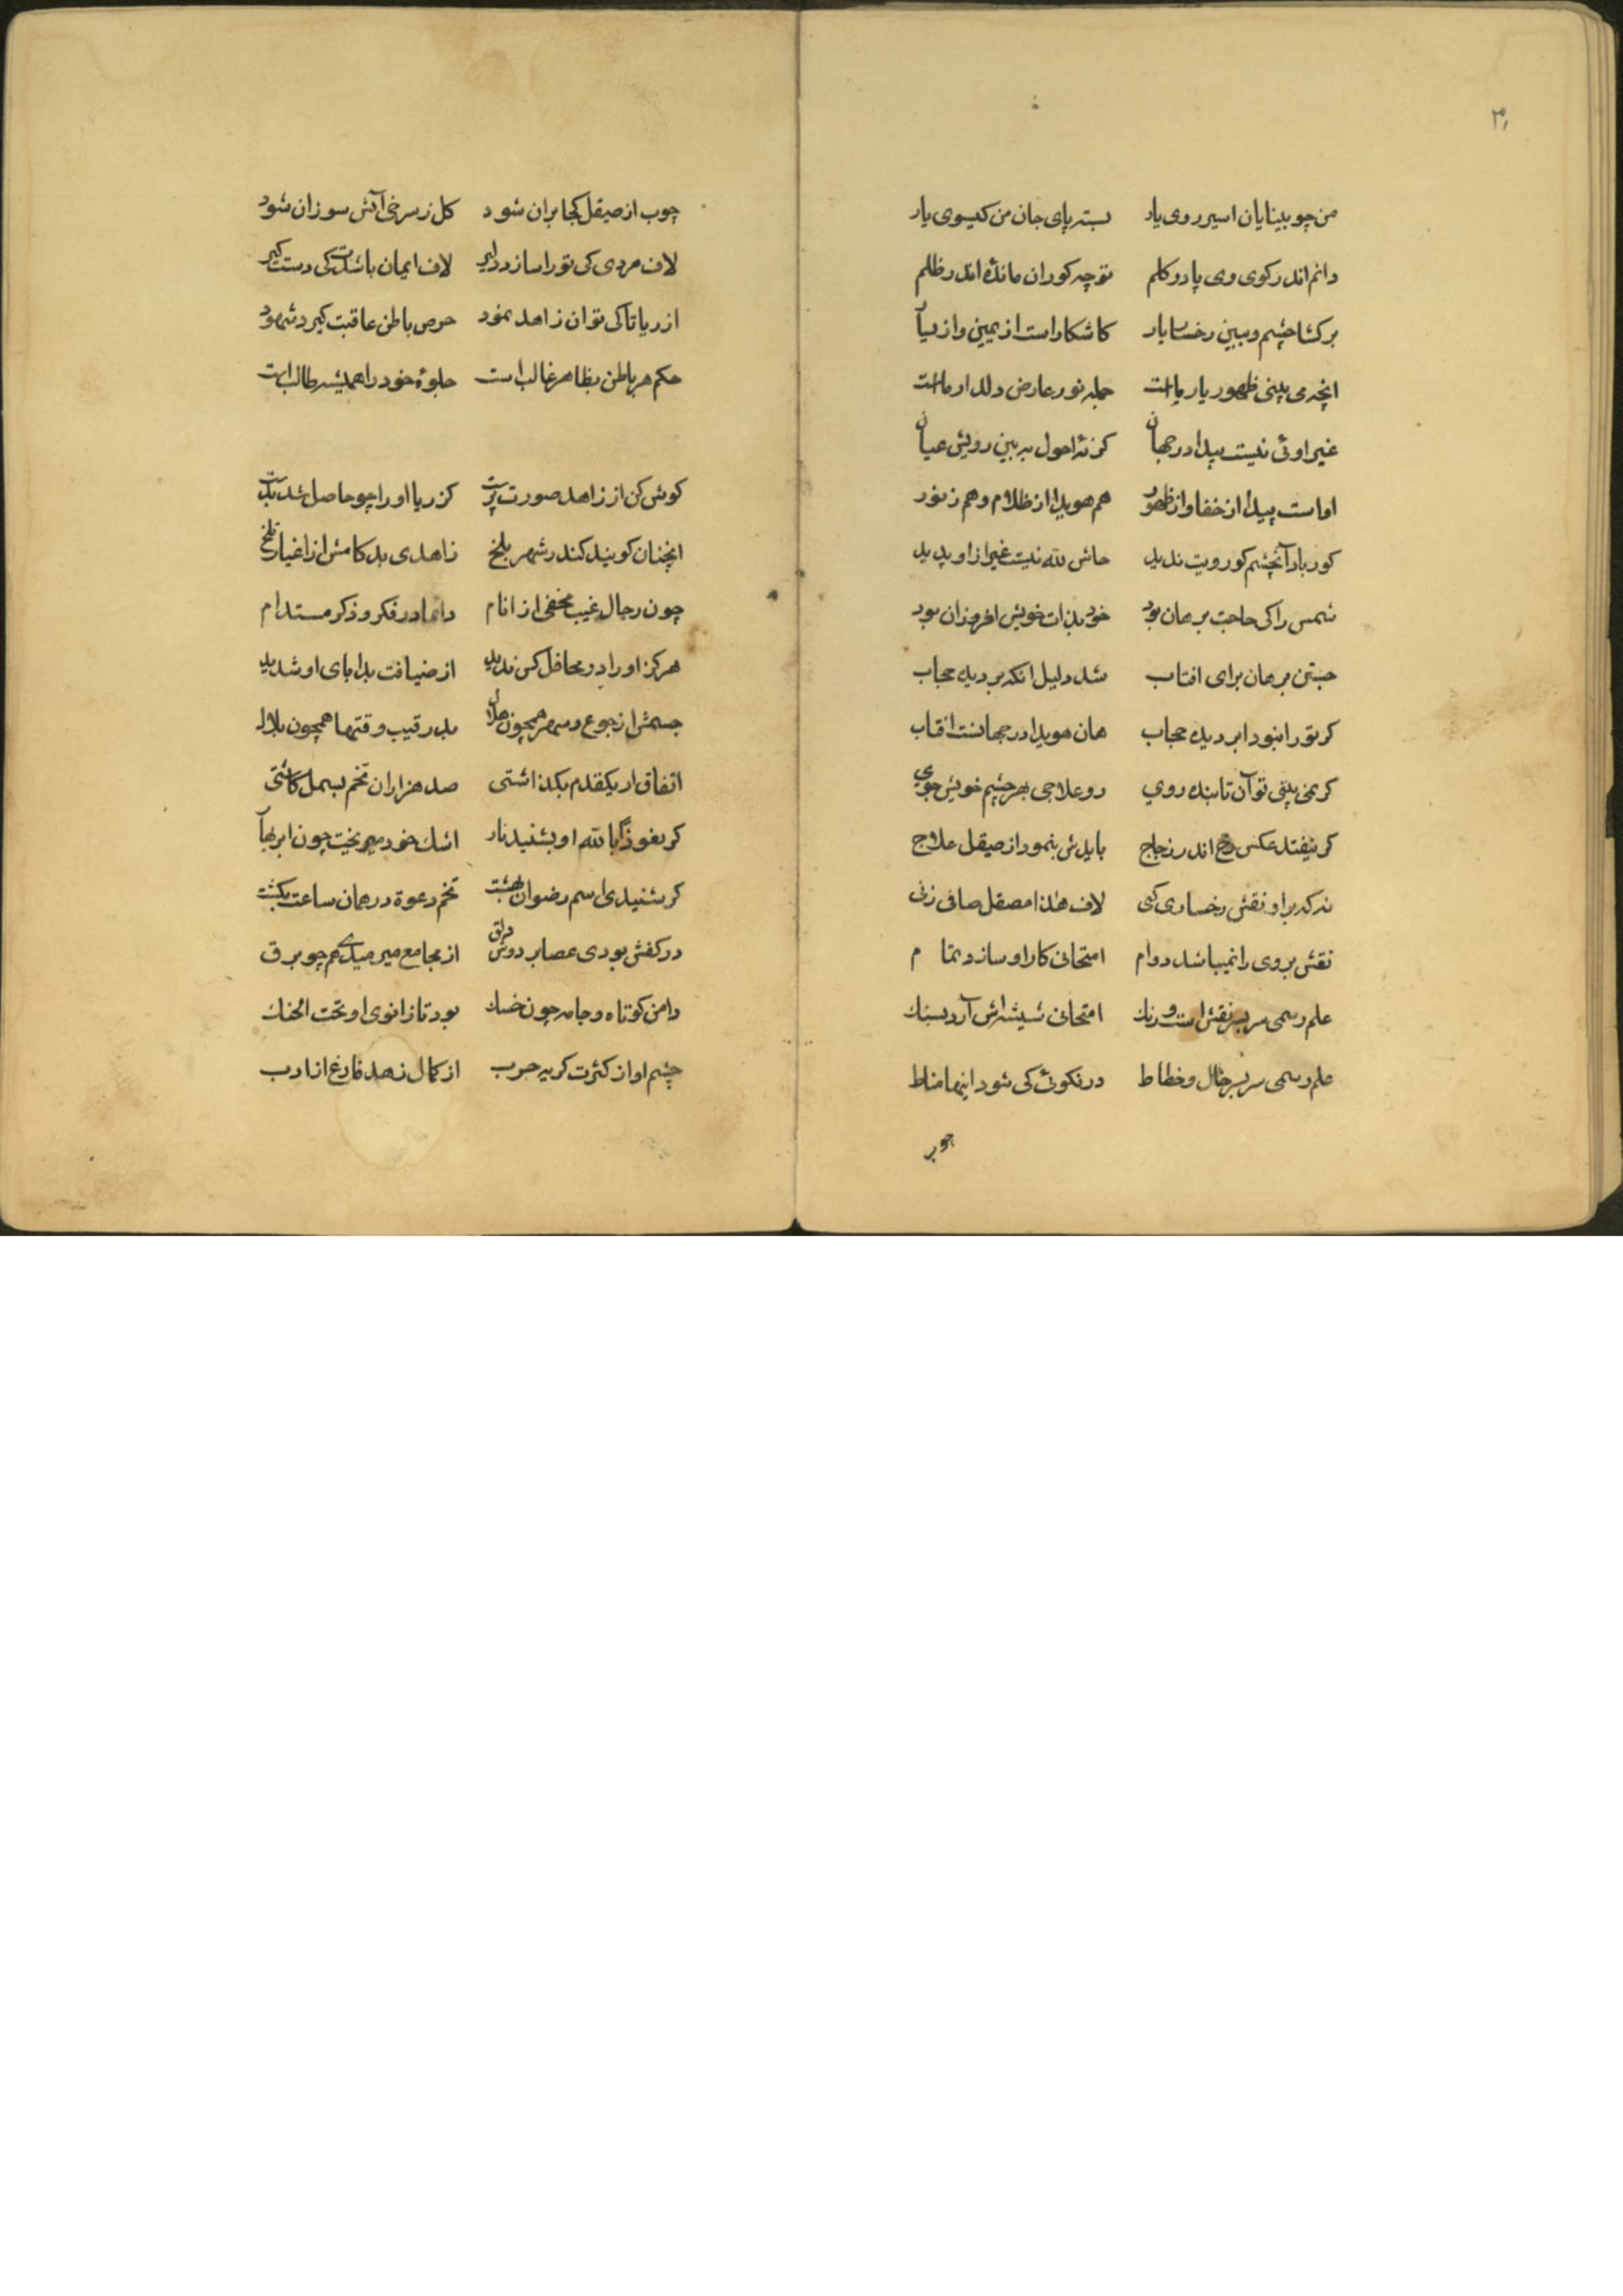 ۳۰
من چو بینایان اسیر روی یار بسته پای جان من کیسوی یار
دانم اندر کوی وی پا در کلم تو چه کوران مانده اندر ظلم
برکشا چشم و ببین رخسار یار کاشکار است از یمین و از یسار
انچه می بینی ظهور یار ماست جمله نور عارض دلدار ماست
غیر اوئی نیست پیدا در جهان کر نهٔ احول ببین رویش عیان
او است پیدا از خفا و از ظهور هم هویدا از ظلام و هم ز نور
کور باد آنچشم کو رویت ندید حاش لله نیست غیر از او پدید
شمس را کی حاجت برهان بود خود بذات خویش افروزان بود
جستن برهان برای افتاب شد دلیل انکه بر دیده حجاب
کر تو را نبود ابر دیده حجاب هان هویدا در جهانست افتاب
کر نمی بینی تو آن تابنده روی رو علاجی بهر چشم خویش جوی
کر نیفتد عکس رخ اندر زجاج بایدش بنمود از صیقل علاج
نه که بر او نقش رخساری کنی لاف هذا مصقل صافی زنی
نقش بروی را نمیباشد دوام امتحانی کار او سازد تمام
علم رسمی سربسر نقش است و رنک امتحانی شیشه‌اش آرد بسنک
علم رسمی سربسر خال و خطاط در نکوئی کی شود اینها مناط
چوب
چوب از صیقل کجا بران شود کل ز سرخی آتش سوزان شود
لاف مردی کی تو را سازد دلیر لاف ایمان باشدت کی دست کیر
از ریا تا کی توان زاهد نمود حرص باطن عاقبت کیرد شهود
حکم هر باطن بظاهر غالب است جلوهٔ خود را همیشه طالب است
کوش کن از زاهد صورت پرست کز ریا او را چو حاصل شد بدست
انچنان کویند کندر شهر بلخ زاهدی بد کامش از اغیار تلخ
چون رجال غیب مخفی از انام دائما در فکر و ذکر مستدام
هرکز او را در محافل کس ندید از ضیافت بد ابای او شدید
جسمش از جوع و سهر همچون هلال بد رقیب وقتها همچون بلال
اتفاق ار یکقدم بکذاشتی صد هزاران تخم بسمل کاشتی
کر نعوذ بالله او بشنید نار اشک خود میریخت چون ابر بهار
کر شنیدی اسم رضوان بهشت تخم دعوة در همان ساعت بکشت
در کفش بودی عصا بر دوش دلق از مجامع میرمیدی هم چو برق
دامن کوتاه و جامه چون خسک بود تا زانوی او تحت الحنک
چشم او از کثرت کریه جرب از کمال زهد فارغ از ادب